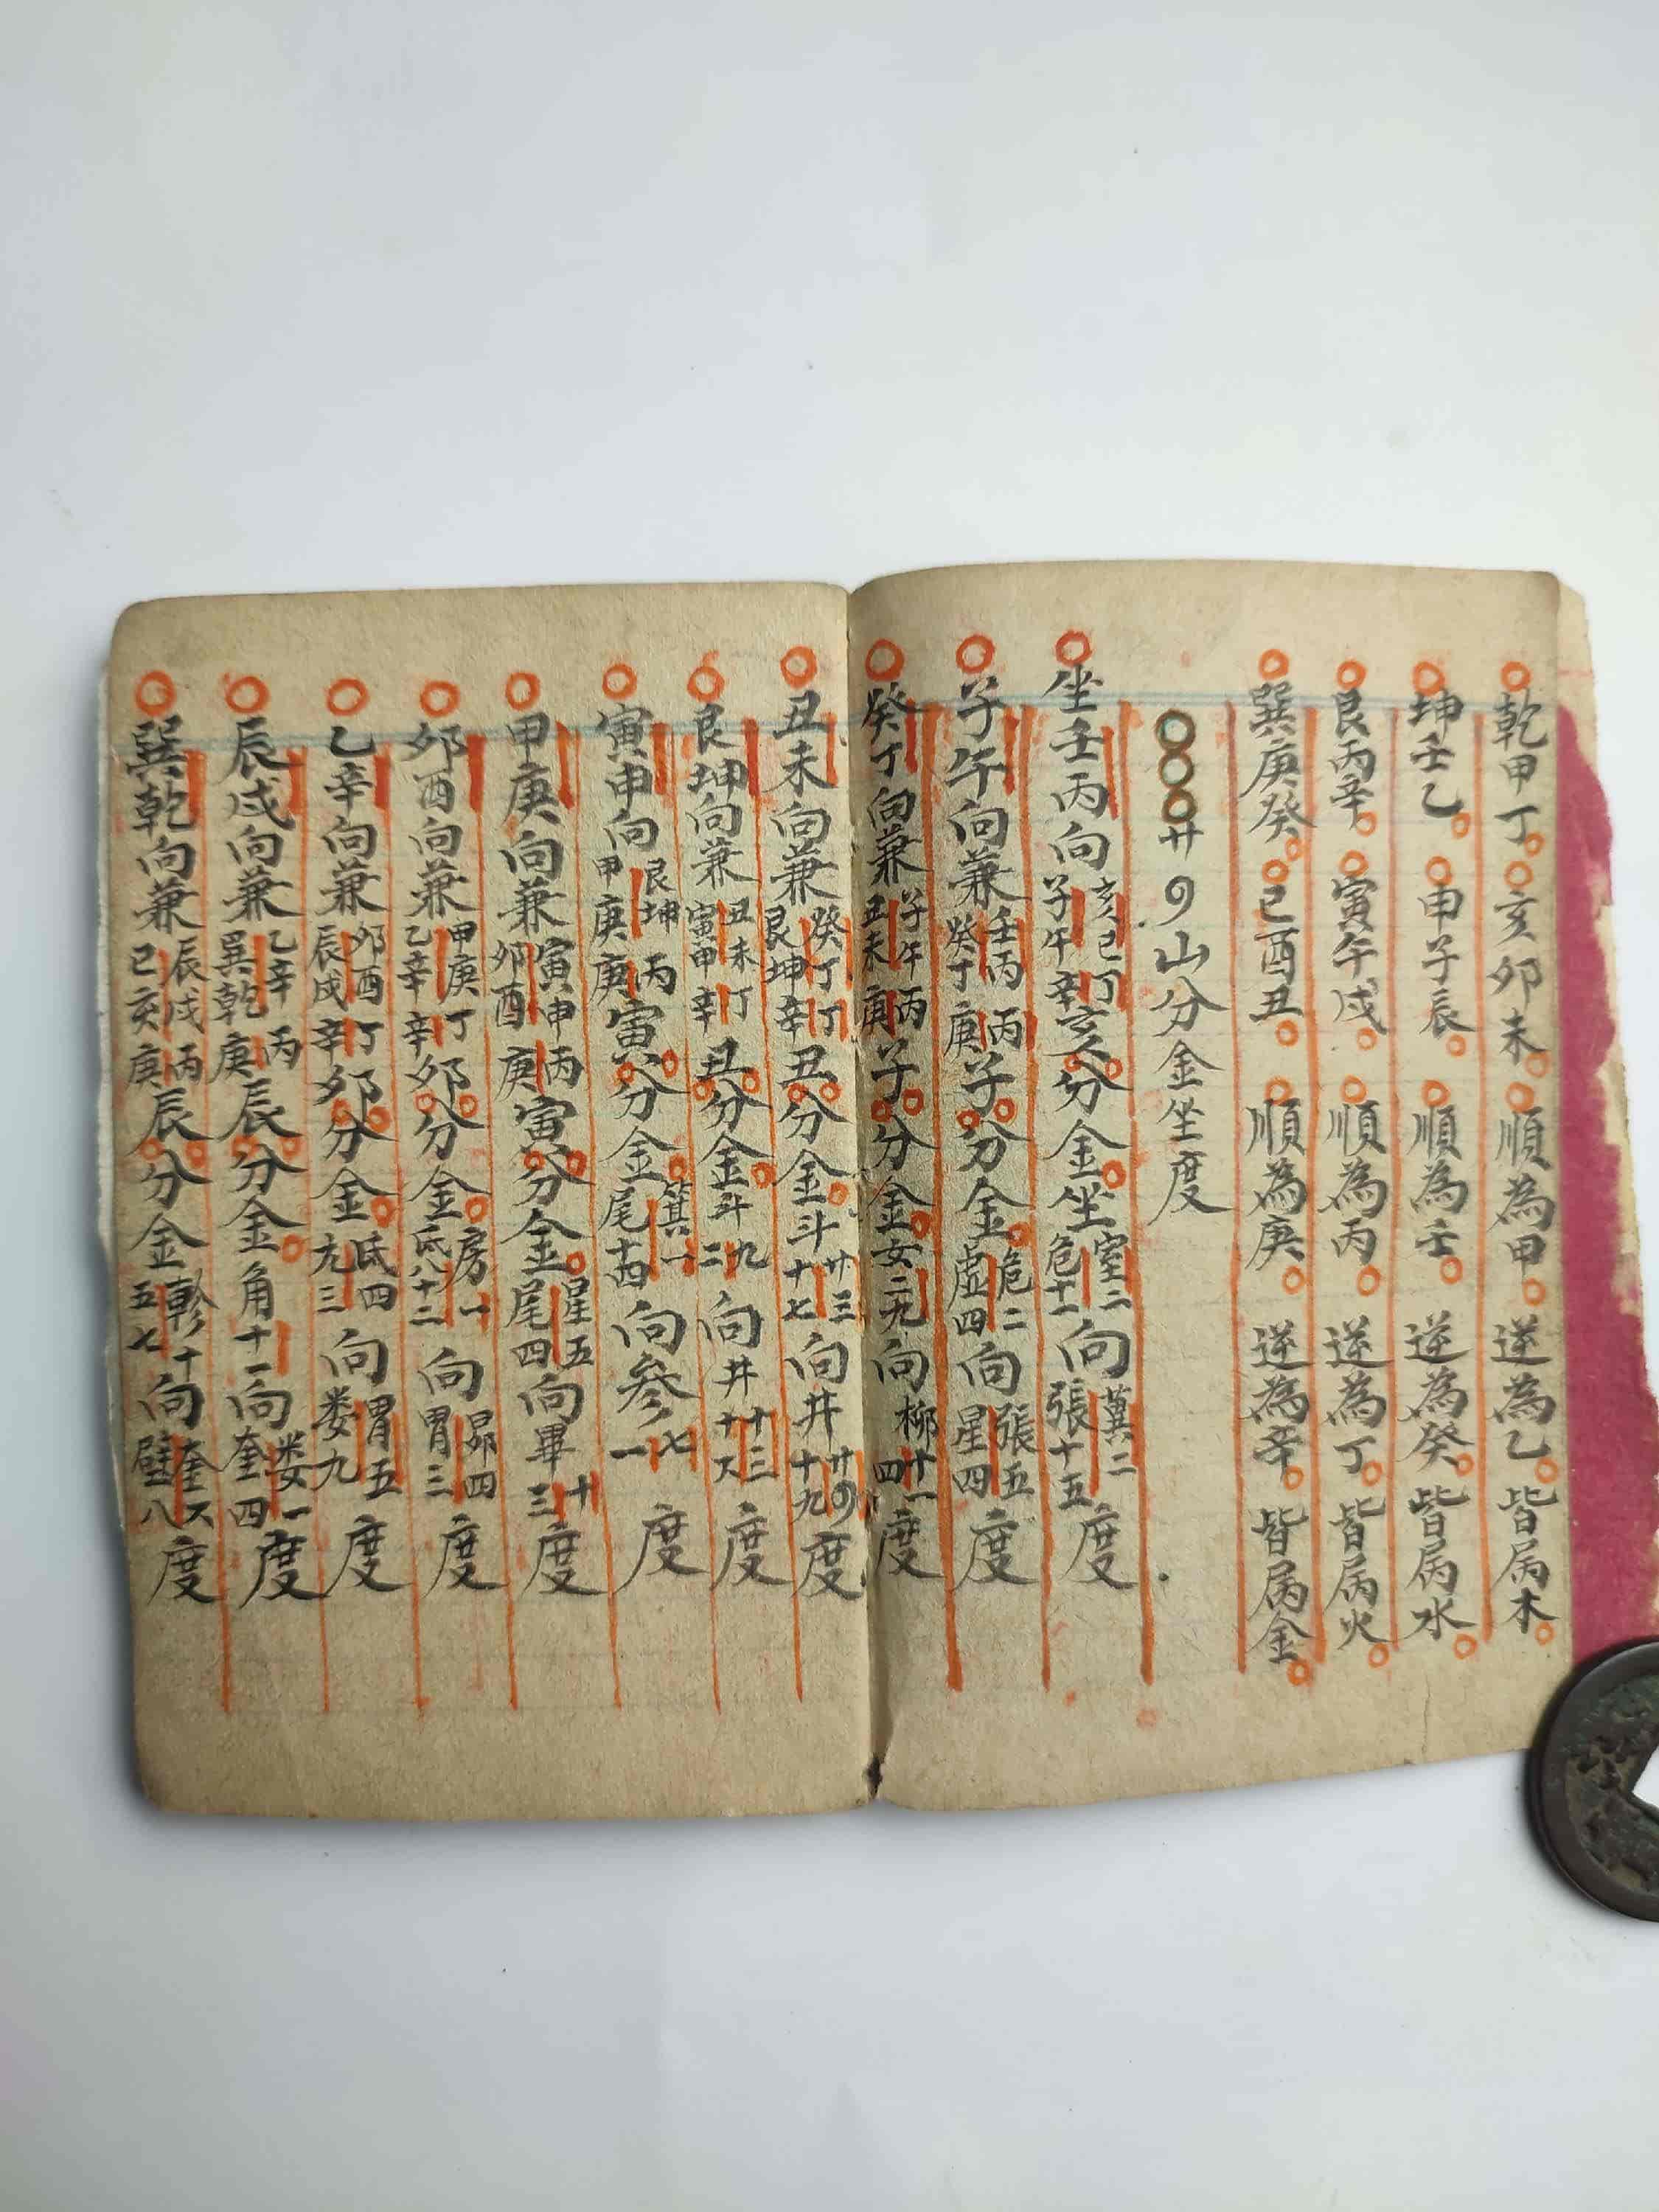 乾甲丁。亥卯未。順為甲。逆為乙。皆屬木。
坤壬乙。申子辰。順為壬。逆為癸。皆屬水。
艮丙辛。寅午戌。順為丙。逆為丁。皆屬火。
巽庚癸。巳酉丑。順為庚。逆為辛。皆屬金。
廿〇山分金坐度
坐壬丙向亥巳丁子午辛亥分金。坐室二危十二向翼二張十五度
子午向兼壬丙丙癸丁庚子分金。危二虛四向張五星四度
癸丁向兼子午丙丑未庚子分金。女二九向柳十一四度
丑未向兼癸丁丁艮坤辛丑分金。斗廿三十七向井廿〇十九度
艮坤向兼丑未丁寅申辛丑分金。斗九二向井十三十六度
寅申向艮坤丙甲庚庚寅分金。箕一尾十四向參七一度
甲庚向兼寅申丙卯酉庚寅分金。星五尾四向畢十三度
卯酉向兼甲庚丁乙辛辛卯分金。房一氐八十二向昴四胃三度
乙辛向兼卯酉丁辰戌辛卯分金。氐四亢三向胃五娄九度
辰戌向兼乙辛丙巽乾庚辰分金。角十一向娄一奎四度
巽乾向兼辰戌丙巳亥庚辰分金軫十五七向奎六壁八度